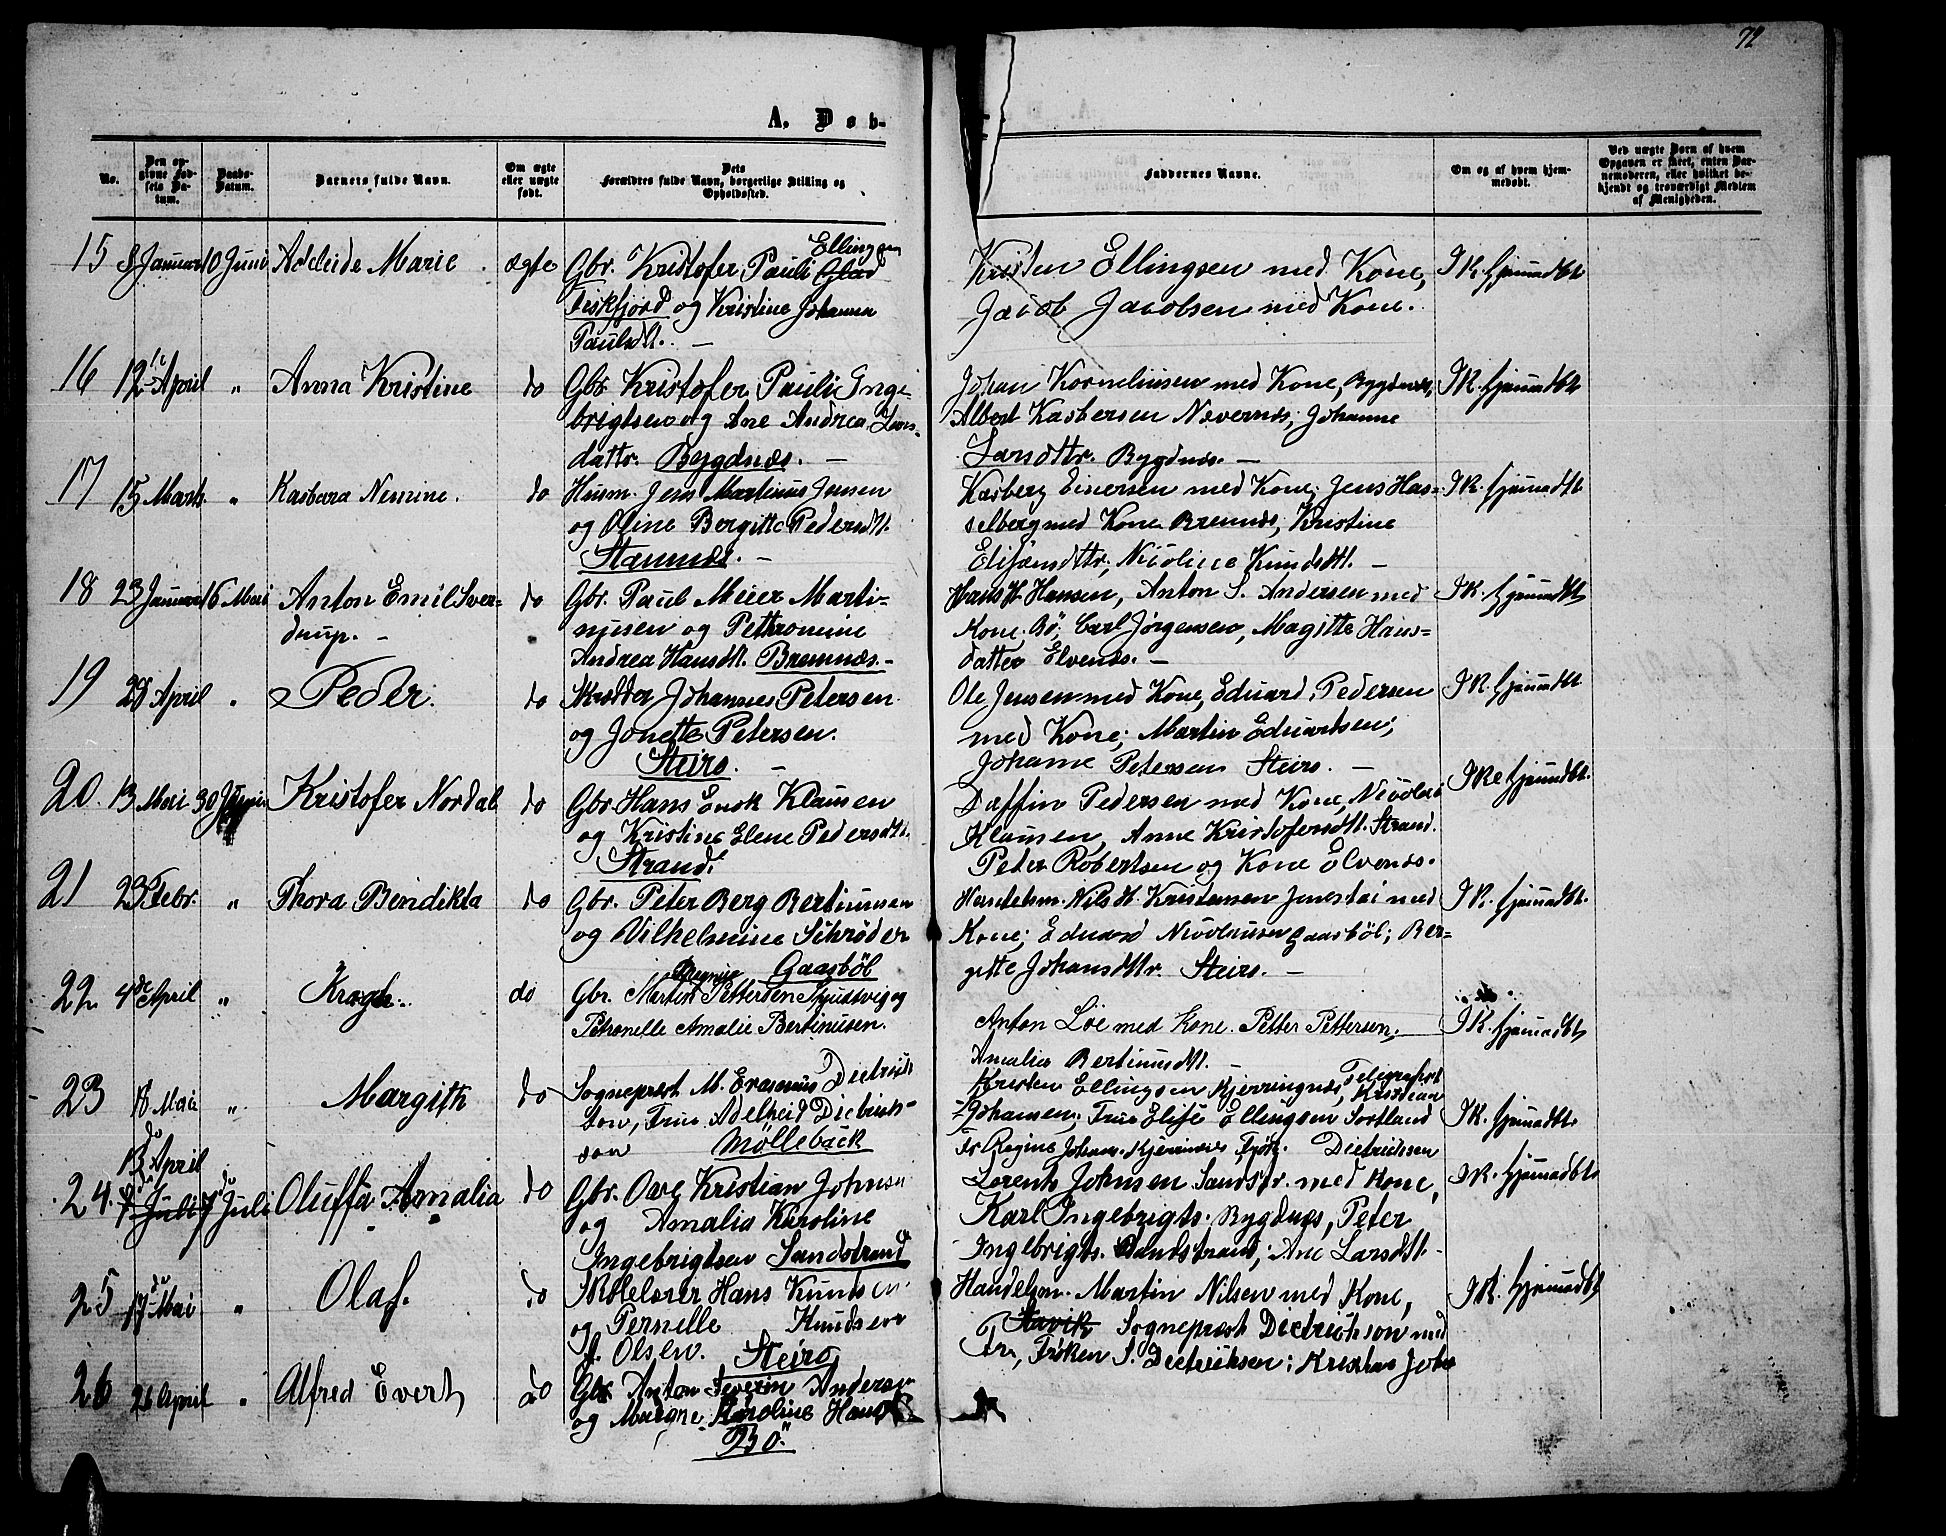 72
A. Døb-
No.
Den op-
givne Fød-
sels Da-
tum.
Daabs-
Datum.
Barnets fulde Navn.
Om ægte
eller uægte
født.
Dets
Forældres fulde Navn, borgerlige Stilling og
Opholdssted.
Faddernes Navne.
Om og af hvem hjem-
medøbt.
Ved uægte Børn af hvem
Opgaven er skeet, enten Bar-
nemoderen, eller hvilket be-
kjendt og troværdigt Medlem
af Menigheden.
15 8 Januar 10 Juni Adeleide Marie ægte Gbr. Kristofer Pauli Ellingsen
Fiskfjord og Kristine Johanna
Paulsdt. —
Kristen Ellingsen med Kone,
Jacob Jacobsen med Kone.
IK. hjemmedbt
16 12 April " Anna Kristine do Gbr. Kristofer Pauli Inge-
brigtsen og Ane Andrea Lars-
dattr. Bygdnæs. —
Johan Korneliusen med Kone, Bygdnæs,
Albert Kasbersen Nævernæs; Johanne
Larsdttr. Bygdnæs. —
IK. hjemmedbt
17 15 Marts " Kasbara Nemine. do Husm. Jens Martinus Jensen
og Oline Bergitte Pedersdt.
Stamnæs. —
Kasberg Einersen med Kone; Jens Has-
selberg med Kone Bremnæs, Kristine
Nicoline Knudsdt. —
IK. hjemmedbt
18 23 Januar 16 Mai Anton Emil Sver-
drup. - do Gbr. Paul Meier Marti-
nusen og Pethronine
Andrea Hansdt. Bremnæs. -
Hans H. Hansen, Anton S. Andersen med
Kone. Bø; Carl Jørgensen, Magitte Hans-
datter Elvenæs. —
IK. hjemmedbt
19 28 April " Peder. do Skrædder Johannes Petersen
og Jonette Petersen.
Steiro. —
Ole Jensen med Kone, Eduard Pedersen
med Kone; Martin Eduartsen;
Johanne Petersen Steiro. —
IK. hjemmedbt
20. 13 Mai 30 Juni Kristofer Nordal do Gbr. Hans Enok Klausen
og Kristine Elene Pedersdt.
Strand.
Daffin Pedersen med Kone, Nicolai
Klausen, Anne Kristofersdt. Strand.
Peter Robertsen og Kone Elvenæs.
IK. hjemmedbt.
21 23 Febr. " Thora Bendikta do Gbr. Peter Berg Bertinusen
og Vilhelmine Schrøder
Gaasbøl
Handelsm. Nils H. Kristensen med
Kone; Eduard Nicolaisen Gaasbøl; Ber-
gitte Johansdttr. Steiro. —
IK. hjemmedbt.
22 4de April " Kragh. do Gbr. Martin Pettersen og
Petronelle Amalie Bertinusen.
Anton Loe med Kone. Petter Pettersen,
Amalia Bertinusdt. —
IK. hjemmedbt
23 18 Mai " Margith do Sogneprest M. Erasmus Dietrich-
son, Frue Adelheid Dietrich-
son Møllebäck
Kristen Ellingsen Kjerringnæs, Telegrafist Kristian
Johansen; Frue Elise Ellingsen Sortland
Fr. Regine Johans. Kjerringnæs Frøk. Dietrichson
IK. hjemmedbt.
24. 13de April 7de Juli Oluffa Amalia do Gbr. Ove Kristian Johnsen
og Amalia Karoline
Ingebrigtsen Sandstrand
Lorents Johnsen Sandstr. med Kone,
Karl Ingebrigts. Bygdnæs, Peter
Ingebrigts. Sandstrand; Ane Larsdtt.
IK. hjemmedbt
25 17de Mai " Olaf. do Skolelærer Hans Knudsen
og Pernelle Knudsen
f. Olsen. Steiro
Handelsm. Martin Nilsen med Kone,
Sogneprest Dietrichson med
Fr., Frøken S. Dietrichsen; Kristian Joha
IK. hjemmedbt
26 26 April " Alfred Evert do Gbr. Anton Severin Andersen
og Margne Karoline Hansdt
Bø.